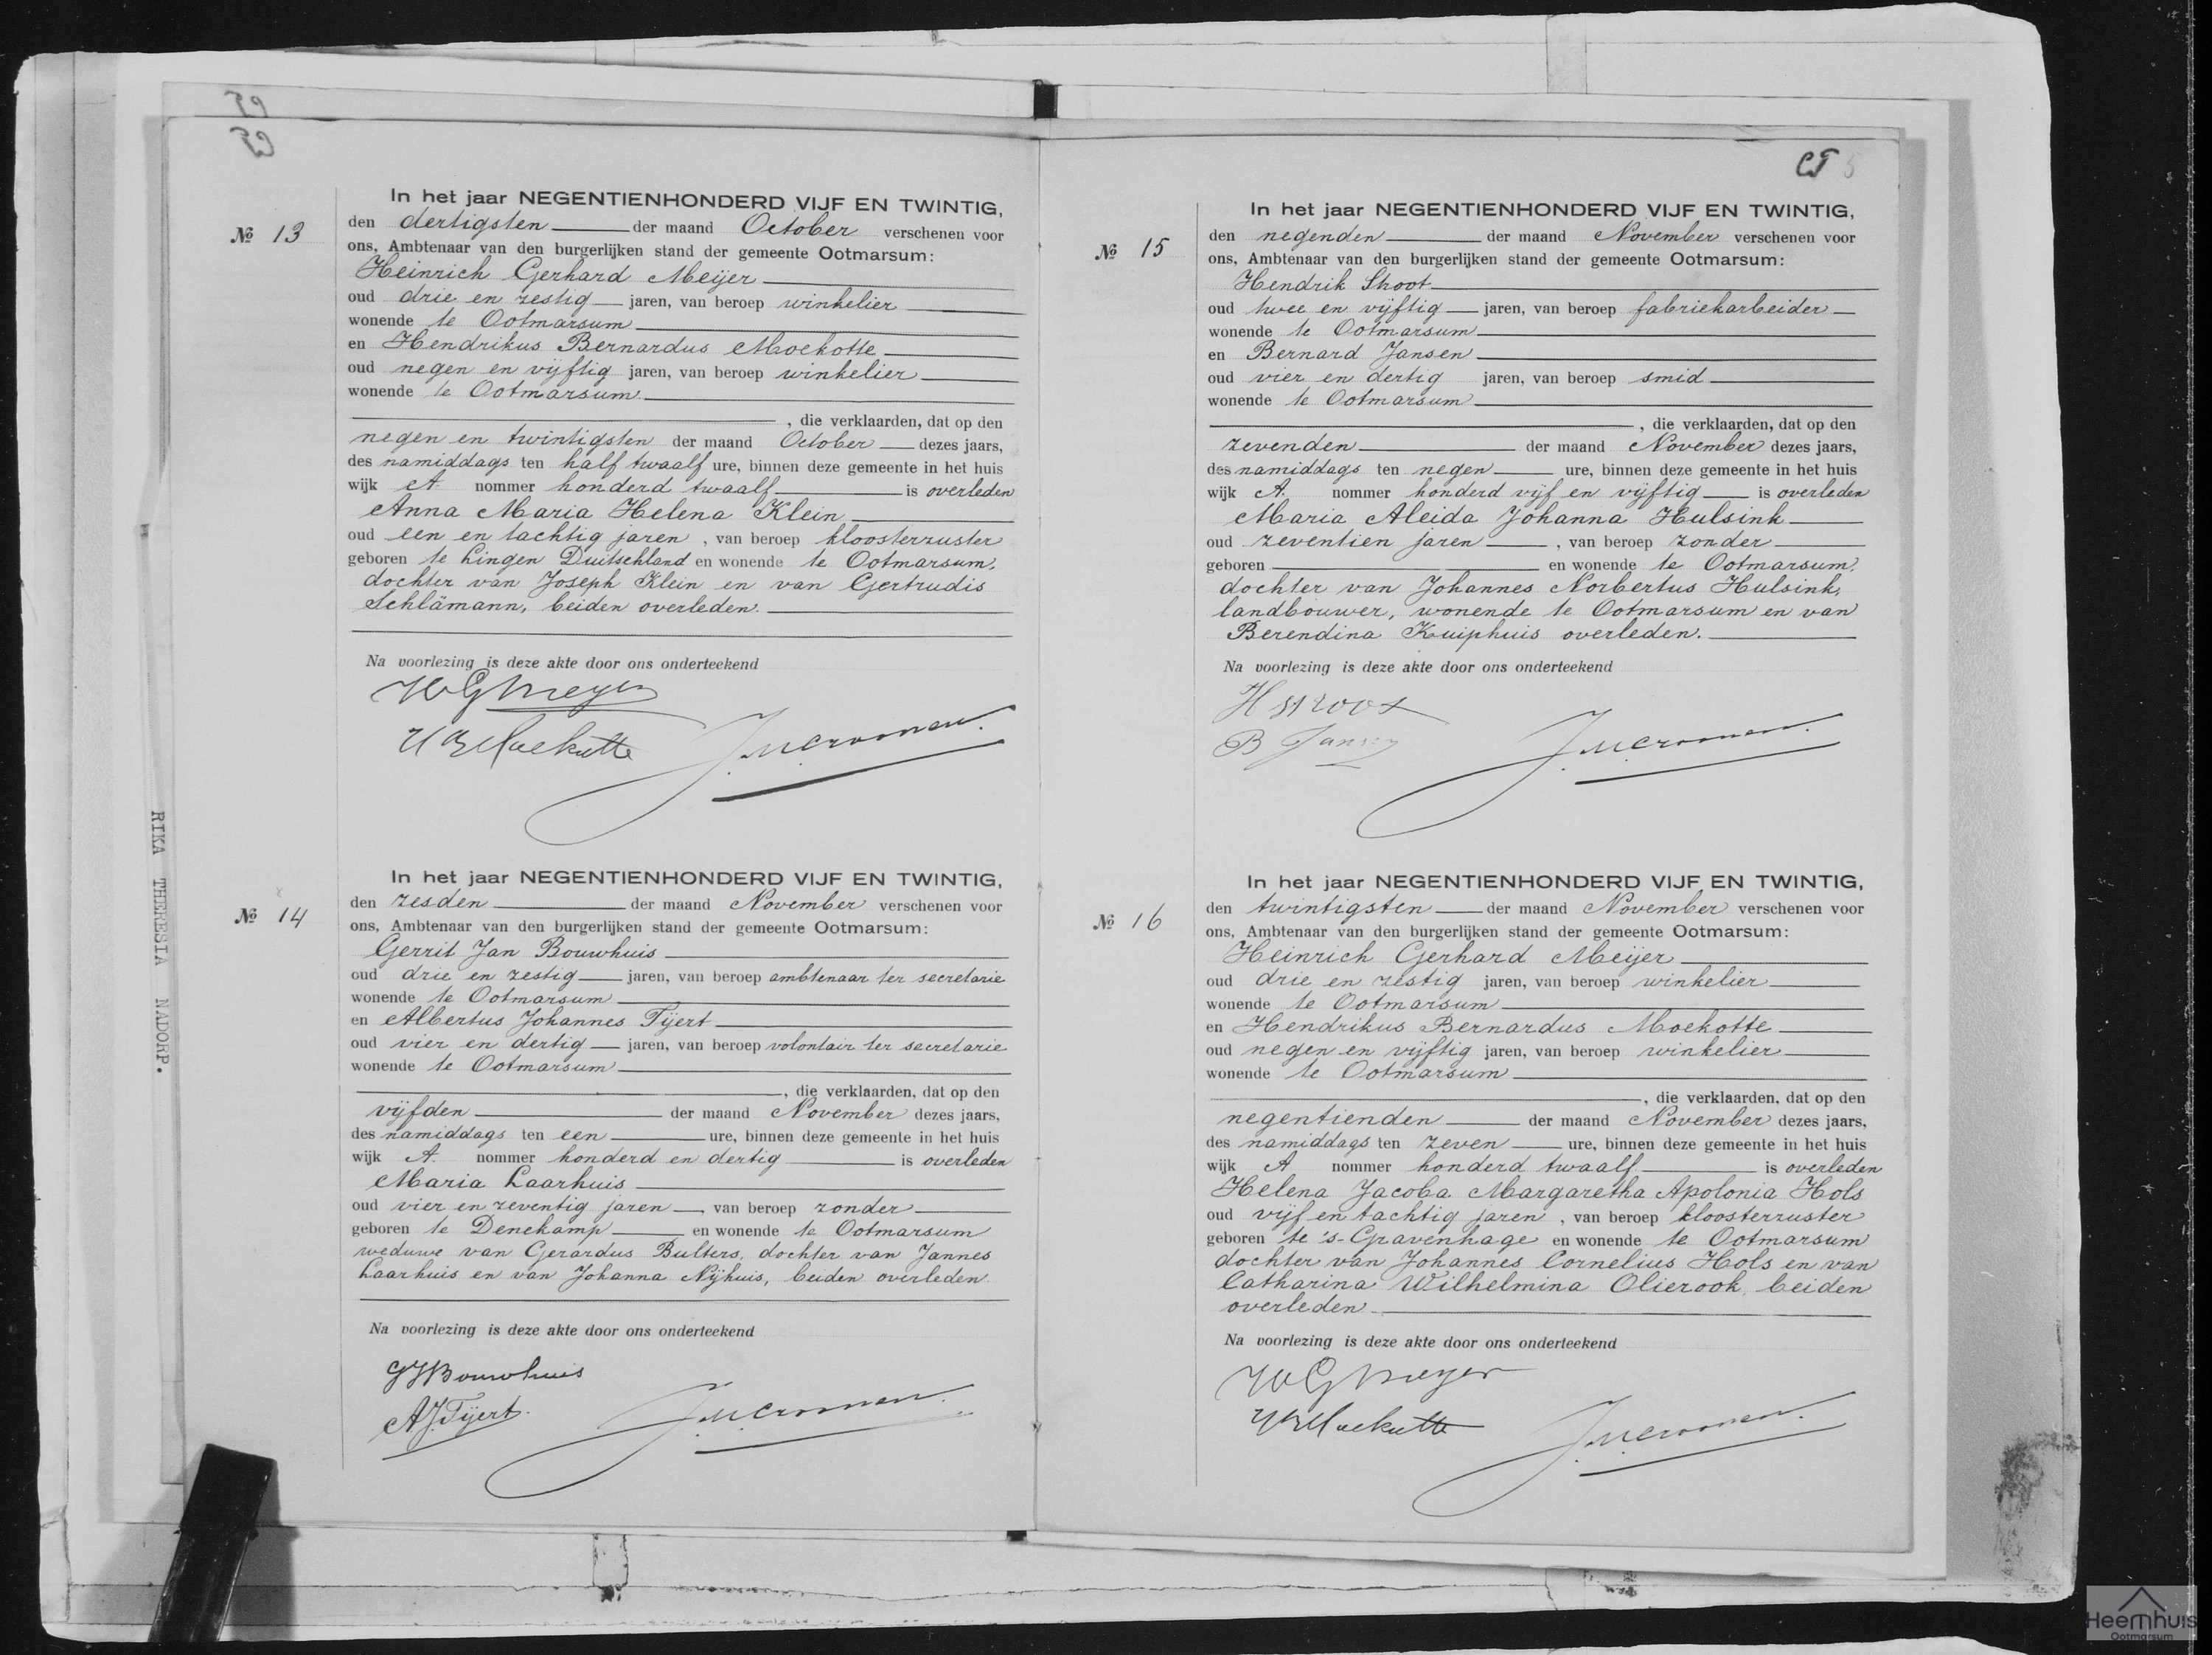 In het jaar NEGENTIENHONDERD VIJF EN TWINTIG,
№ 13
den dertigsten der maand October verschenen voor
ons, Ambtenaar van den burgerlijken stand der gemeente Ootmarsum:
Heinrich Gerhard Meijer
oud drie en zestig jaren, van beroep winkelier
wonende te Ootmarsum
en Hendrikus Bernardus Moekotte
oud negen en vijftig jaren, van beroep winkelier
wonende te Ootmarsum
, die verklaarden, dat op den
negen en twintigsten der maand October dezes jaars,
des namiddags ten half twaalf ure, binnen deze gemeente in het huis
wijk A. nommer honderd twaalf is overleden
Anna Maria Helena Klein
oud een en tachtig jaren, van beroep kloosterzuster
geboren te Lingen Duitschland en wonende te Ootmarsum,
dochter van Joseph Klein en van Gertrudis
Schlämann, beiden overleden.
Na voorlezing is deze akte door ons onderteekend
HGMeyer
HBMoekotte J.M.Cromen.
In het jaar NEGENTIENHONDERD VIJF EN TWINTIG,
№ 14
den zesden der maand November verschenen voor
ons, Ambtenaar van den burgerlijken stand der gemeente Ootmarsum:
Gerrit Jan Bouwhuis
oud drie en zestig jaren, van beroep ambtenaar ter secretarie
wonende te Ootmarsum
en Albertus Johannes Tijert
oud vier en dertig jaren, van beroep volontair ter secretarie
wonende te Ootmarsum
, die verklaarden, dat op den
vijfden der maand November dezes jaars,
des namiddags ten een ure, binnen deze gemeente in het huis
wijk A. nommer honderd en dertig is overleden
Maria Laarhuis
oud vier en zeventig jaren, van beroep zonder
geboren te Denekamp en wonende te Ootmarsum
weduwe van Gerardus Bulters, dochter van Jannes
Laarhuis en van Johanna Nijhuis, beiden overleden.
Na voorlezing is deze akte door ons onderteekend
GJBouwhuis
AJ.Tijert.
RIKA THERESIA NADORP.
In het jaar NEGENTIENHONDERD VIJF EN TWINTIG,
№ 15
den negenden der maand November verschenen voor
ons, Ambtenaar van den burgerlijken stand der gemeente Ootmarsum:
Hendrik Stroot
oud twee en vijftig jaren, van beroep fabriekarbeider
wonende te Ootmarsum
en Bernard Jansen
oud vier en dertig jaren, van beroep smid
wonende te Ootmarsum
, die verklaarden, dat op den
zevenden der maand November dezes jaars,
des namiddags ten negen ure, binnen deze gemeente in het huis
wijk A. nommer honderd vijf en vijftig is overleden
Maria Aleida Johanna Hulsink
oud zeventien jaren, van beroep zonder
geboren en wonende te Ootmarsum,
dochter van Johannes Norbertus Hulsink,
landbouwer, wonende te Ootmarsum en van
Berendina Kuiphuis overleden.
Na voorlezing is deze akte door ons onderteekend
H Stroot
B Jansen
In het jaar NEGENTIENHONDERD VIJF EN TWINTIG,
№ 16
den twintigsten der maand November verschenen voor
ons, Ambtenaar van den burgerlijken stand der gemeente Ootmarsum:
Heinrich Gerhard Meijer
oud drie en zestig jaren, van beroep winkelier
wonende te Ootmarsum
en Hendrikus Bernardus Moekotte
oud negen en vijftig jaren, van beroep winkelier
wonende te Ootmarsum
, die verklaarden, dat op den
negentienden der maand November dezes jaars,
des namiddags ten zeven ure, binnen deze gemeente in het huis
wijk A nommer honderd twaalf is overleden
Helena Jacoba Margaretha Apolonia Hols
oud vijf en tachtig jaren, van beroep kloosterzuster
geboren te 's-Gravenhage en wonende te Ootmarsum
dochter van Johannes Cornelius Hols en van
Catharina Wilhelmina Olierook, beiden
overleden
Na voorlezing is deze akte door ons onderteekend
HGMeyer
HBMoekotte
Heemhuis
Ootmarsum